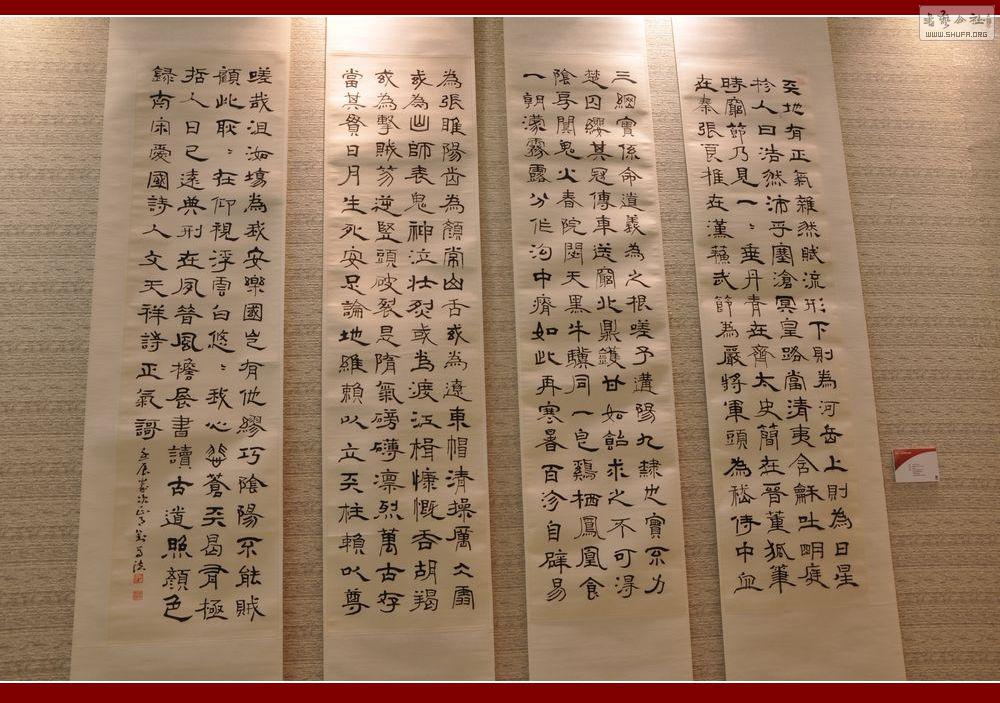 天地有正氣雜然賦流形下則為河岳上則為日星
於人曰浩然沛乎塞滄冥皇路當清夷含龢吐明庭
時窮節乃見一〻垂丹青在齊太史簡在晉董狐筆
在秦張良椎在漢蘇武節為嚴將軍頭為嵇侍中血
三綱實係命道義為之根嗟予遘陽九隸也實不力
楚囚纓其冠傳車送窮北鼎鑊甘如飴求之不可得
陰房闃鬼火春院閟天黑牛驥同一皂鷄栖鳳凰食
一朝濛霧露分作沟中瘠如此再寒暑百沴自辟易
為張睢陽齒為顏常山舌或為遼東帽清操厲冰雪
或為出師表鬼神泣壯烈或為渡江楫慷慨吞胡羯
或為擊賊笏逆豎頭破裂是隋氣磅礴凜烈萬古存
當其貫日月生死安足論地維賴以立天柱賴以尊
嗟哉沮洳場為我安樂國豈有他繆巧陰陽不能賊
顧此耿〻在仰視浮雲白悠〻我心悲蒼天曷有極
哲人日已遠典刑在夙昔風檐展書讀古道照顏色
錄南宋愛國詩人文天祥詩正氣謌
WWW.SHUFA.ORG